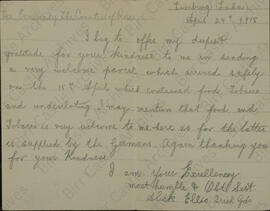 Limburg Lahn
April 29th 1915
Her Excellency The Countess of
I beg to offer my deepest
gratitude for your kindness to me in sending
a very welcome parcel which arrived safely
on the 15th April which contained food, Tobacco
and underclothing I may mention that food and
Tobacco is very welcome to me here as for the latter
is supplied by the Germans. Again thanking you
for your Kindness
I am Your Excellency
most humble & Obt Servt
Dick Ellis. Irish Gds